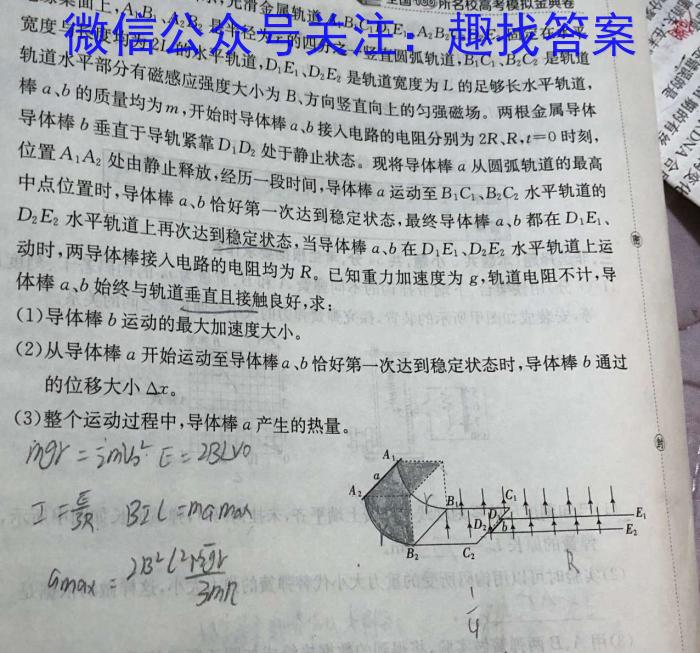 全国100所名校高考模拟金典卷
微信公众号关注：趣找答案
宽度与长度均为2L的水平轨道，D₁E₁、D₂E₂是轨道宽度为L的足够长水平轨道，
轨道水平部分有磁感应强度大小为B、方向竖直向上的匀强磁场。两根金属导体
棒a、b的质量均为m，开始时导体棒a、b接入电路的电阻分别为2R、R，t=0时刻，
导体棒b垂直于导轨紧靠D₁D₂处于静止状态。现将导体棒a从圆弧轨道的最高
位置A₁A₂处由静止释放，经历一段时间，导体棒a运动至B₁C₁、B₂C₂水平轨道的
中点位置时，导体棒a、b恰好第一次达到稳定状态，最终导体棒a、b都在D₁E₁、
D₂E₂水平轨道上再次达到稳定状态，当导体棒a、b在D₁E₁、D₂E₂水平轨道上运
动时，两导体棒接入电路的电阻均为R。已知重力加速度为g，轨道电阻不计，导
体棒a、b始终与轨道垂直且接触良好，求：
(1)导体棒b运动的最大加速度大小。
(2)从导体棒a开始运动至导体棒a、b恰好第一次达到稳定状态时，导体棒b通过
的位移大小Δx。
(3)整个运动过程中，导体棒a产生的热量。
mgr=½mv₀² E=2BLv₀
I=E/3R BIL=ma max
a max=2B²L²√2gr/3mR
A₁
a
A₂
r
B₁
C₁
D₁
E₁
D₂
b
E₂
B₂
C₂
R
1/4